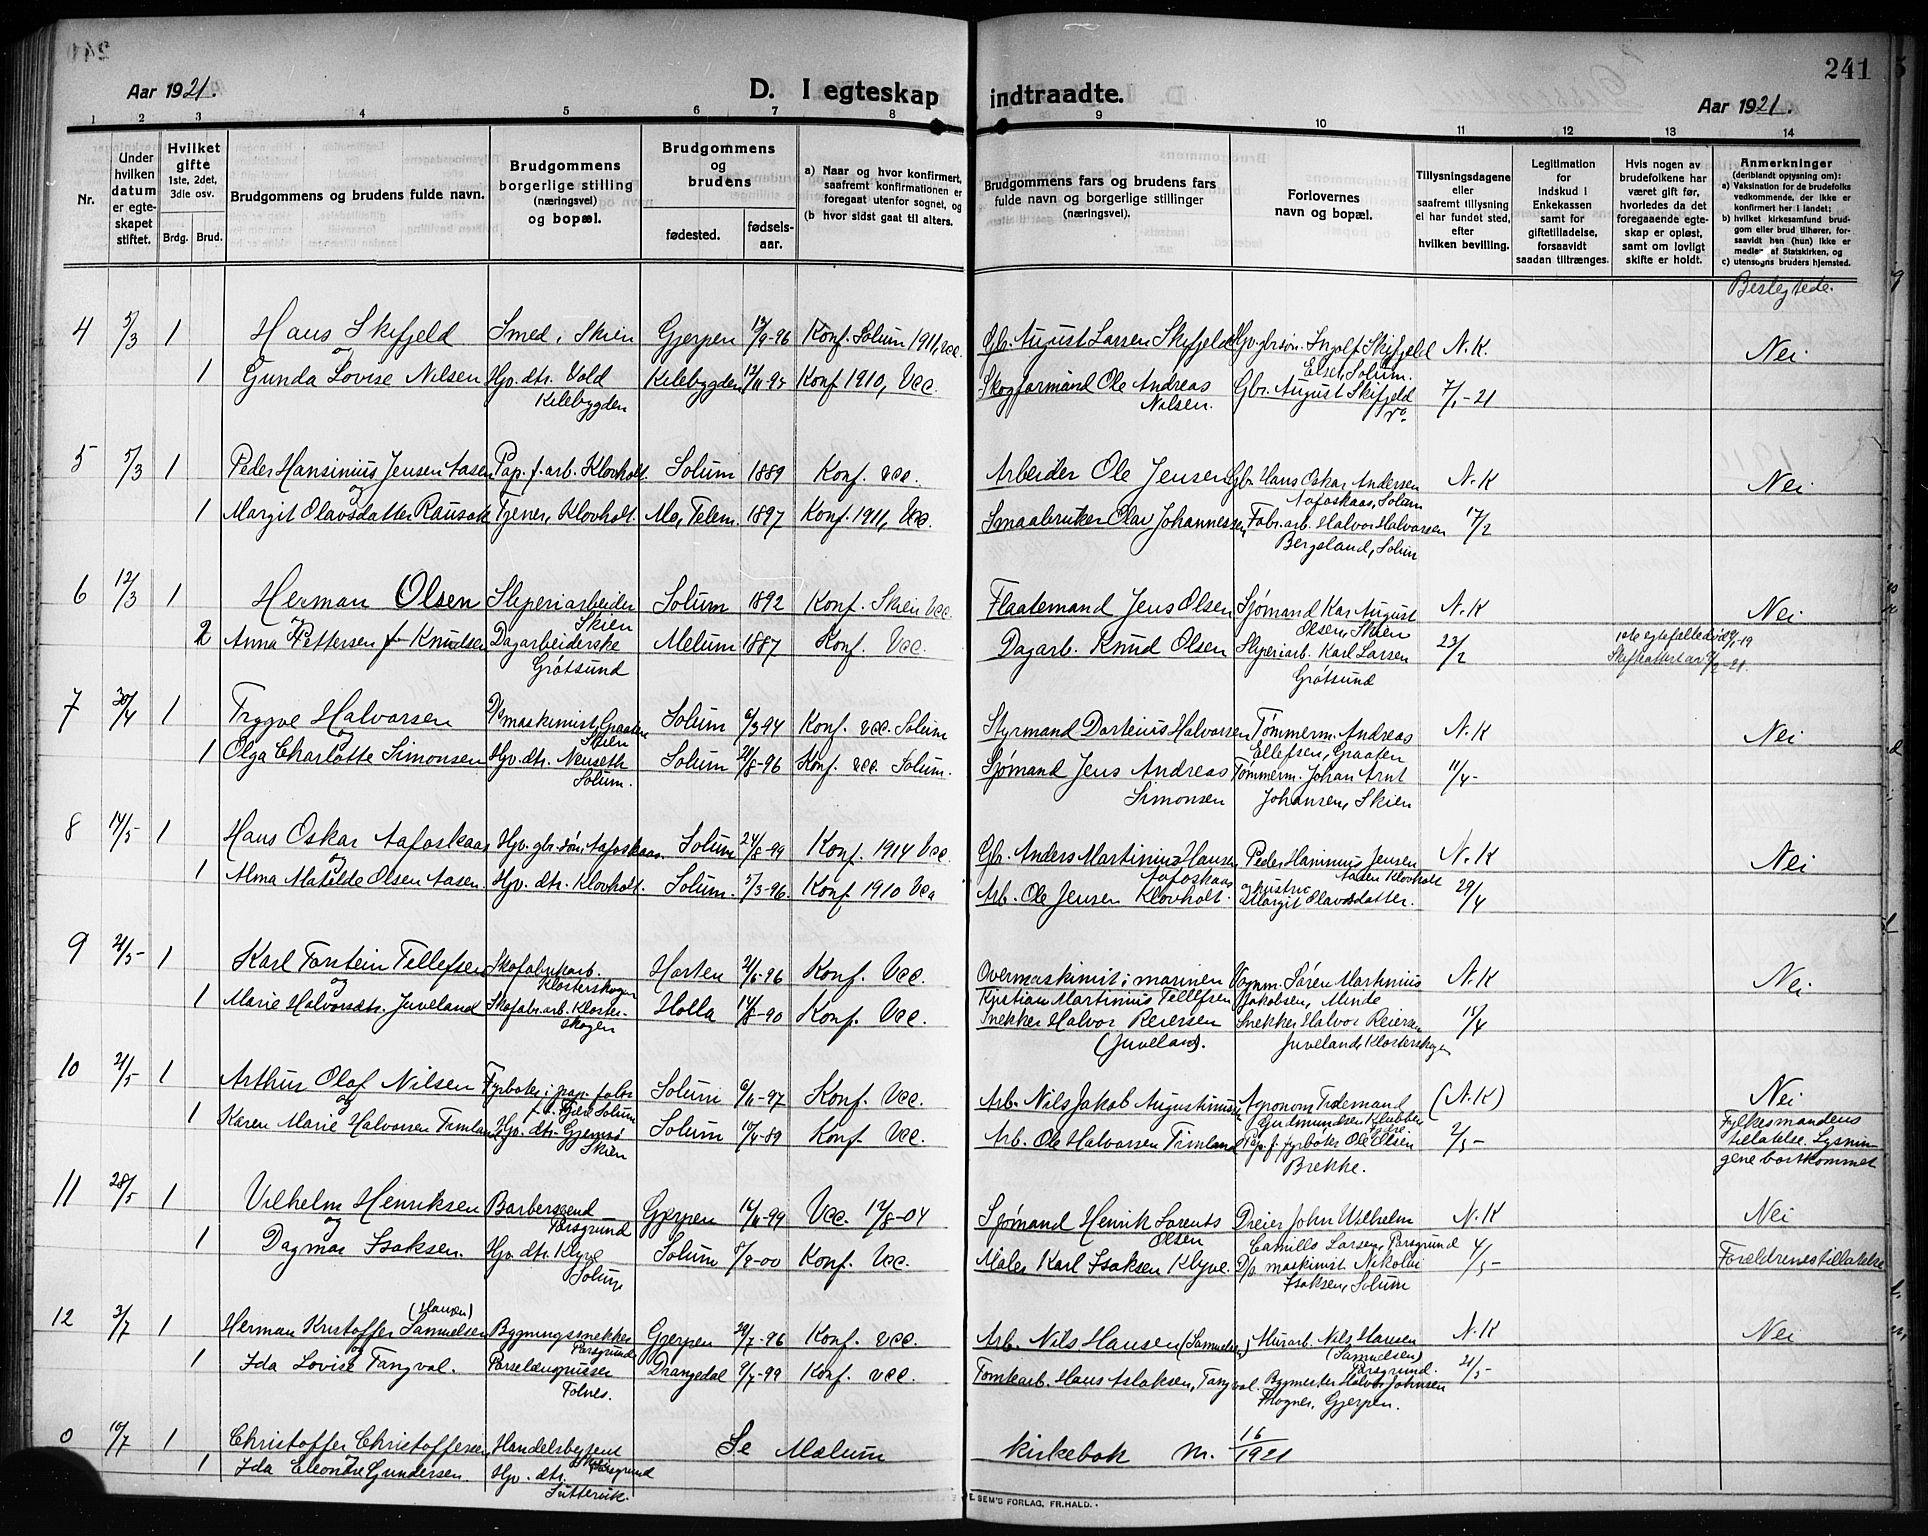 241
Aar 1921.
D. I egteskap indtraadte.
Aar 1921.
1 2 3 4 5 6 7 8 9 10 11 12 13 14
Nr.
Under hvilken datum er egteskapet stiftet.
Hvilket gifte 1ste, 2det, 3die osv.
Brdg. Brud.
Brudgommens og brudens fulde navn.
Brudgommens borgerlige stilling (næringsvei) og bopæl.
Brudgommens og brudens
fødested.
fødselsaar.
a) Naar og hvor konfirmert, saafremt konfirmationen er foregaat utenfor sognet, og
(b hvor sidst gaat til alters.
Brudgommens fars og brudens fars fulde navn og borgerlige stillinger (næringsvei).
Forlovernes navn og bopæl.
Tillysningsdagene eller saafremt tillysning ei har fundet sted, efter hvilken bevilling.
Legitimation for indskud i Enkekassen samt for giftetilladelse, forsaavidt saadan tiltrænges.
Hvis nogen av brudefolkene har været gift før, hvorledes da det foregaaende egteskap er opløst, samt om lovligt skifte er holdt.
Anmerkninger (deriblandt oplysning om):
a) Vaksination for de brudefolks vedkommende, der ikke er konfirmert her i landet;
b) hvilket kirkesamfund brudgom eller brud tilhører, forsaavidt han (hun) ikke er medlem af Statskirken, og
c) utensogns bruders hjemsted.
Beslegtede.
4 5/3 1 Hans Skifjeld Smed, Skien Gjerpen 12/9-96 Konf. Solum 1911, vcc. Gbr. August Larsen Skifjeld Hjv. gbrsøn. Ingolf Skifjeld N.K. Nei
og Solum.
1 Gunda Lovise Nilsen Hjv. dtr. Vold Kilebygden Konf 1910, Vcc. Skogformand Ole Andreas Gbr. August Skifjeld 7/1-21
Kilebygden Nilsen.
5 5/3 1 Peder Hansinius Jensen Aasen Pap. f. arb. Klovholt. Solum 1889 Konf. vcc. Arbeider Ole Jensen Gbr. Hans Oskar Andersen N.K Nei
og Aafoskaas, Solum
1 Margit Olavsdatter Tjener, Klovholt. Mo, Telem. 1897 Konf. 1911, Vcc. Smaabruker Olav Johannessen, Fabr. arb. Halvor Halvorsen 17/2
Bergsland, Solum
6 12/3 1 Herman Olsen Sliperiarbeider Solum 1892 Konf. Skien Vcc. Flaatemand Jens Olsen Sjømand Kar August N.K Nei
Skien Olsen, Skien
2 Anna Pettersen f. Knudsen Dagarbeiderske Melum 1887 Konf. Vcc. Dagarb. Knud Olsen Sliperiarb. Karl Larsen 23/2
Grøtsund Grøtsund
7 30/4 1 Trygve Halvorsen D/s maskinist, Graaten Solum 6/3-94 Konf. vcc. Solum Styrmand Dortenius Halvorsen Tømmerm. Andreas N.K Nei
og Skien Ellefsen, Graaten
1 Olga Charlotte Simonsen Hjv. dtr. Nenseth Solum Konf. vcc. Solum. Sjømand Jens Andreas Tømmerm. Johan Arnt 11/4-
Solum. Simonsen Johansen, Skien
8 14/5- 1 Hans Oskar Aafoskaas Hjv. gbr. søn. Aafoskaas. Solum 24/8-99 Konf. 1914 Vcc. Gbr. Anders Martinius Hansen Peder Hansinius Jensen N.K Nei
og Aafoskaas Aasen Klovholt
1 Alma Matilde Olsen Aasen Hjv. dtr. Klovholt. Solum. 5/3-96. Konf 1910 Vcc Arb. Ole Jensen Klovholt. og hustru Margit Olavsdatter. 29/4
9 21/5- 1 Karl Torstein Tellefsen Skofabrikarb. Horten Konf. Vcc. Overmaskinist i marinen Søren Martinius N.K Nei
og Klosterskogen Kristian Martinius Tellefsen Jakobsen, Minde
1 Marie Halvorsdtr. Juveland Skofabr. arb. Kloster- Holla 14/8-90 Konf. Vcc. Snekker Halvor Reiersen Snekker Halvor Reiersen
skogen (Juveland). Juveland, Klosterskogen
10 21/5 1 Arthur Olaf Nilsen Fyrbøter i pap. fabr. Solum 6/11-97 Konf. Vcc. Arb. Nils Jakob Augustinussen Agronom Tidemand (N.K) Nei
og Solum Gudmundsen Klubben
1 Karen Marie Halvorsen Timland Hjv. dtr. Gjemsø Solum 10/4-89 Konf. Vcc. Arb. Ole Halvorsen Timland Pap. f. fyrbøter Ole Olsen 2/5- Fylkesmandens
Skien Brekke. tillatelse. Lysnin-
gene bortkommet
11 28/5 1 Vilhelm Henriksen Barbersvend Gjerpen Vcc. Sjømand Henrik Lorents Dreier John Wilhelm N.K Nei
og Porsgrund Olsen Camillo Larsen, Porsgrund
1 Dagmar Isaksen. Hjv. dtr. Klyve Solum Konf. Vcc. Maler Karl Isaksen Klyve. D/s. maskinist Nikolai 4/5- Forældrenes tillatelse
Solum Isaksen, Solum
12 3/7 1 Herman Kristoffer Samuelsen (Hansen) Bygningssnekker Gjerpen 29/7-96 Konf. vcc. Arb. Nils Hansen (Samuelsen) Murarb. Nils Hansen N.K Nei
og Porsgrund (Samuelsen) Porsgrund.
1 Ida Lovise Tangval. Porselænspusser Drangedal Konf. vcc. Tomtearb. Hans Aslaksen, Tangval. Bygmester Halvor Johnsen 21/5-
Tolnes. Frogner, Gjerpen.
0 10/7 1 Christoffer Christoffersen, Handelsbetjent Se Melum kirkebok nr. 16/1921
og Porsgrund
1 Ida Eleonore Gundersen. Hjv. dtr.
E. SEM'S FORLAG, FR.HALD.